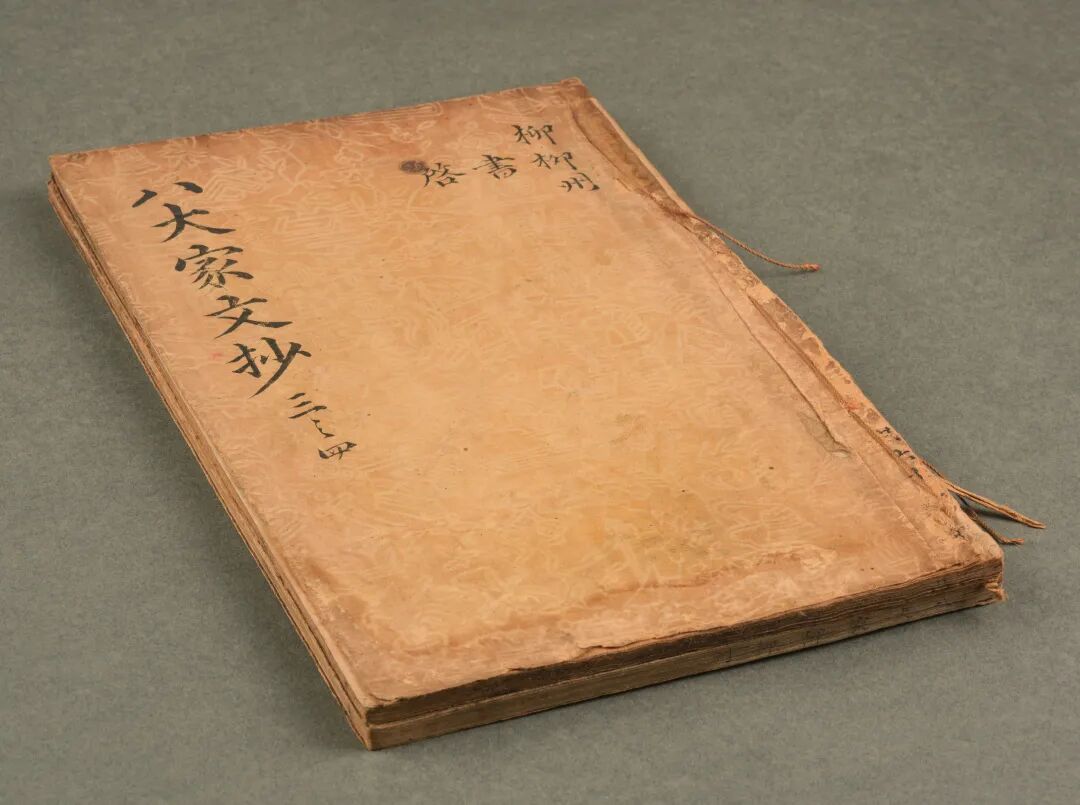 柳柳州
書
啓
八大家文抄 三之四